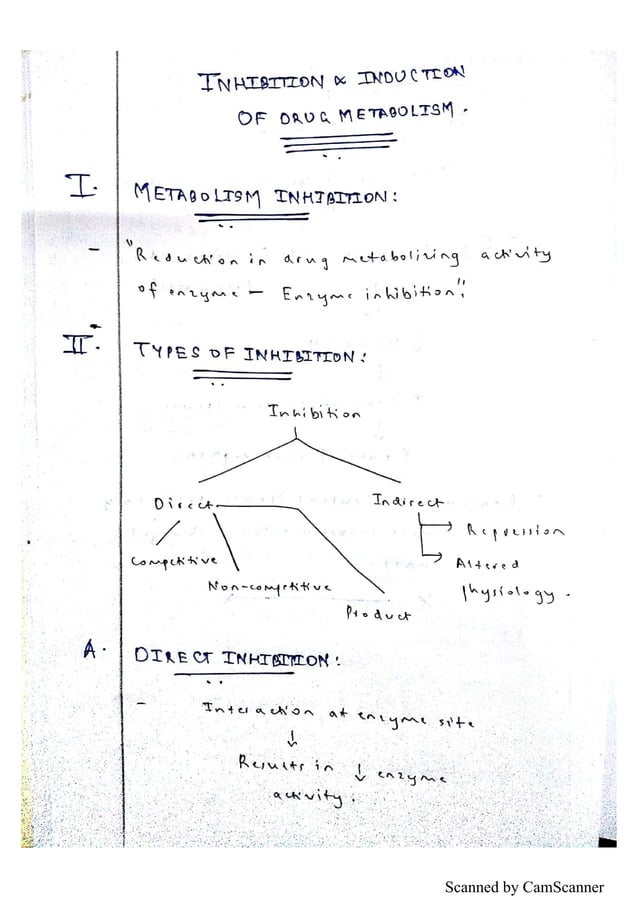 INHIBITION & INDUCTION
OF DRUG METABOLISM.
I. METABOLISM INHIBITION:
- "Reduction in drug metabolizing activity
of enzyme - Enzyme inhibition".
II. TYPES OF INHIBITION:
Inhibition
Direct Indirect
Competitive
Non-competitive
Product
→ Repression
→ Altered
physiology.
A. DIRECT INHIBITION:
- Interaction at enzyme site
↓
Results in ↓ enzyme
activity.
Scanned by CamScanner